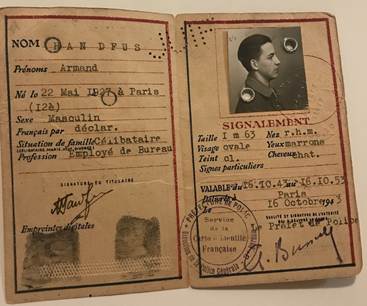 NOM DANDFUS
Prénoms Armand
Né le 22 Mai 1927 à Paris
(12è)
Sexe Masculin
Français par déclar.
Situation de famille Célibataire
Profession Employé de Bureau
SIGNATURE DU TITULAIRE
Empreintes digitales
SIGNALEMENT
Taille 1 m 63 Nez r.h.m.
Visage ovale Yeux marrons
Teint cl. Cheveux chat.
Signes particuliers
VALABLE du 16.10.43 au 16.10.53
Paris
le 16 Octobre 1943
Le Préfet de Police
Service
de la
Carte d'Identité
Française